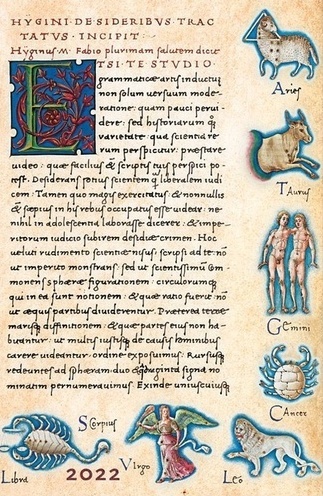 HYGINI·DE·SIDERIBVS·TRAC
TATVS·INCIPIT·
Hyginus·M·Fabio plurimam salutem dicit
ETSI TE STUDIO·
grammaticæ artis inductum
non solum uersuum mode-
ratione: quam pauci peruidere:
sed hystoriarum
uarietate: qua scientia re
rum perspicitur: præstare
uideo: quæ facilius & scriptis tuis perspici po
test. Desiderans potius scientem liberalem iudi
cem: Tamen quo magis exercitatus: & nonnullis
& sæpius in his rebus occupatus esse uidear: ne
nihil in adolescentia laborasse dicerer: & impe-
ritorum iudicio subirem desidiæ crimen. Hoc
ueluti rudimento scientiæ nisus: scripsi ad te: nõ
ut imperito monstrans: sed ut scientissimũ com
monens sphæræ figurationem: circulorumque
qui in ea sunt notionem: & quæ ratio fuerit: nõ
ut æquis partibus diuiderentur. Præterea terræ
marisque diffinitionem: & quæ partes eius non ha
buantur: ut multis iustisque de causis hominibus
carere uideantur: ordine exposuimus. Rursusque
redeuntes ad sphæram: duo & quadraginta signa no
minatim pernumerauimus. Exinde uniuscuiusque
Aries
Taurus
Gemini
Cancer
Leo
Virgo
Scorpius
Libra
2022